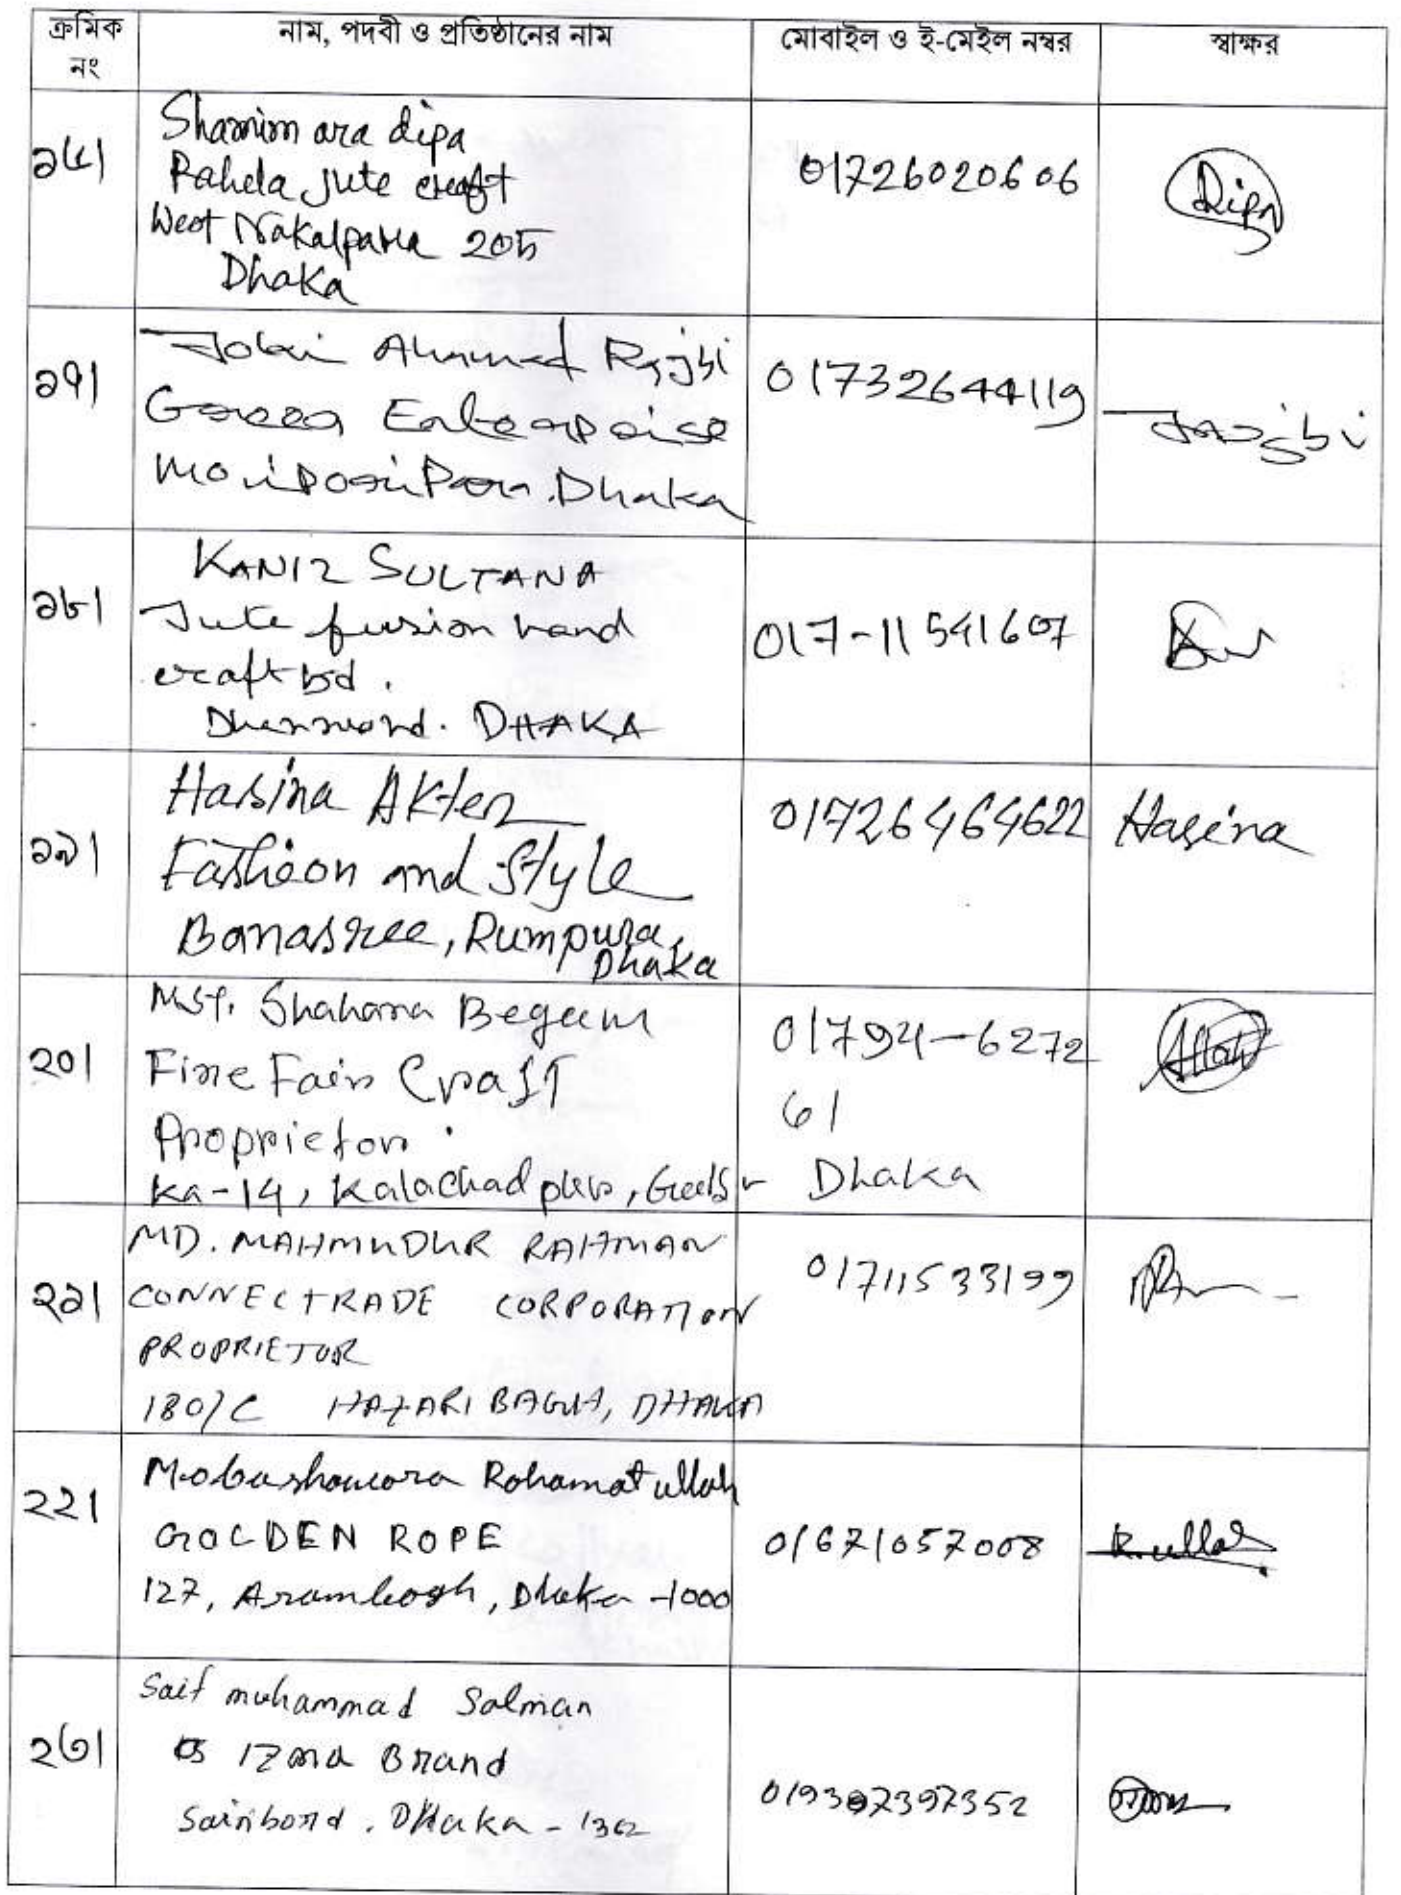 ক্রমিক নং
নাম, পদবী ও প্রতিষ্ঠানের নাম
মোবাইল ও ই-মেইল নম্বর
স্বাক্ষর
১৬।
Shamim ara dipa
Rahela jute craft
West Nakalpara 205
Dhaka
01726020606
Dipa
১৭।
Ahamed
Enterpraise
Dhaka
01732644119
১৮।
KANIZ SULTANA
Jute fusion hand
craft bd.
DHAKA
017-11541607
১৯।
Hasina Akter
Fashion and Style
Banasree, Rumpura,
Dhaka
01726464622
Hasina
২০।
Mst. Shahana Begum
Fine Fair Craft
Proprietor
Ka-14, Kalachadpur,
01794-6272
61
Dhaka
২১।
MD. MAHMUDUR RAHMAN
CONNECTRADE CORPORATION
PROPRIETOR
180/C HAZARIBAGH, DHAKA
01711533199
২২।
Rohamatullah
GOLDEN ROPE
127, Arambagh, Dhaka -1000
01671057008
R.ullah
২৩।
Saif muhammad Salman
Brand
Dhaka - 1362